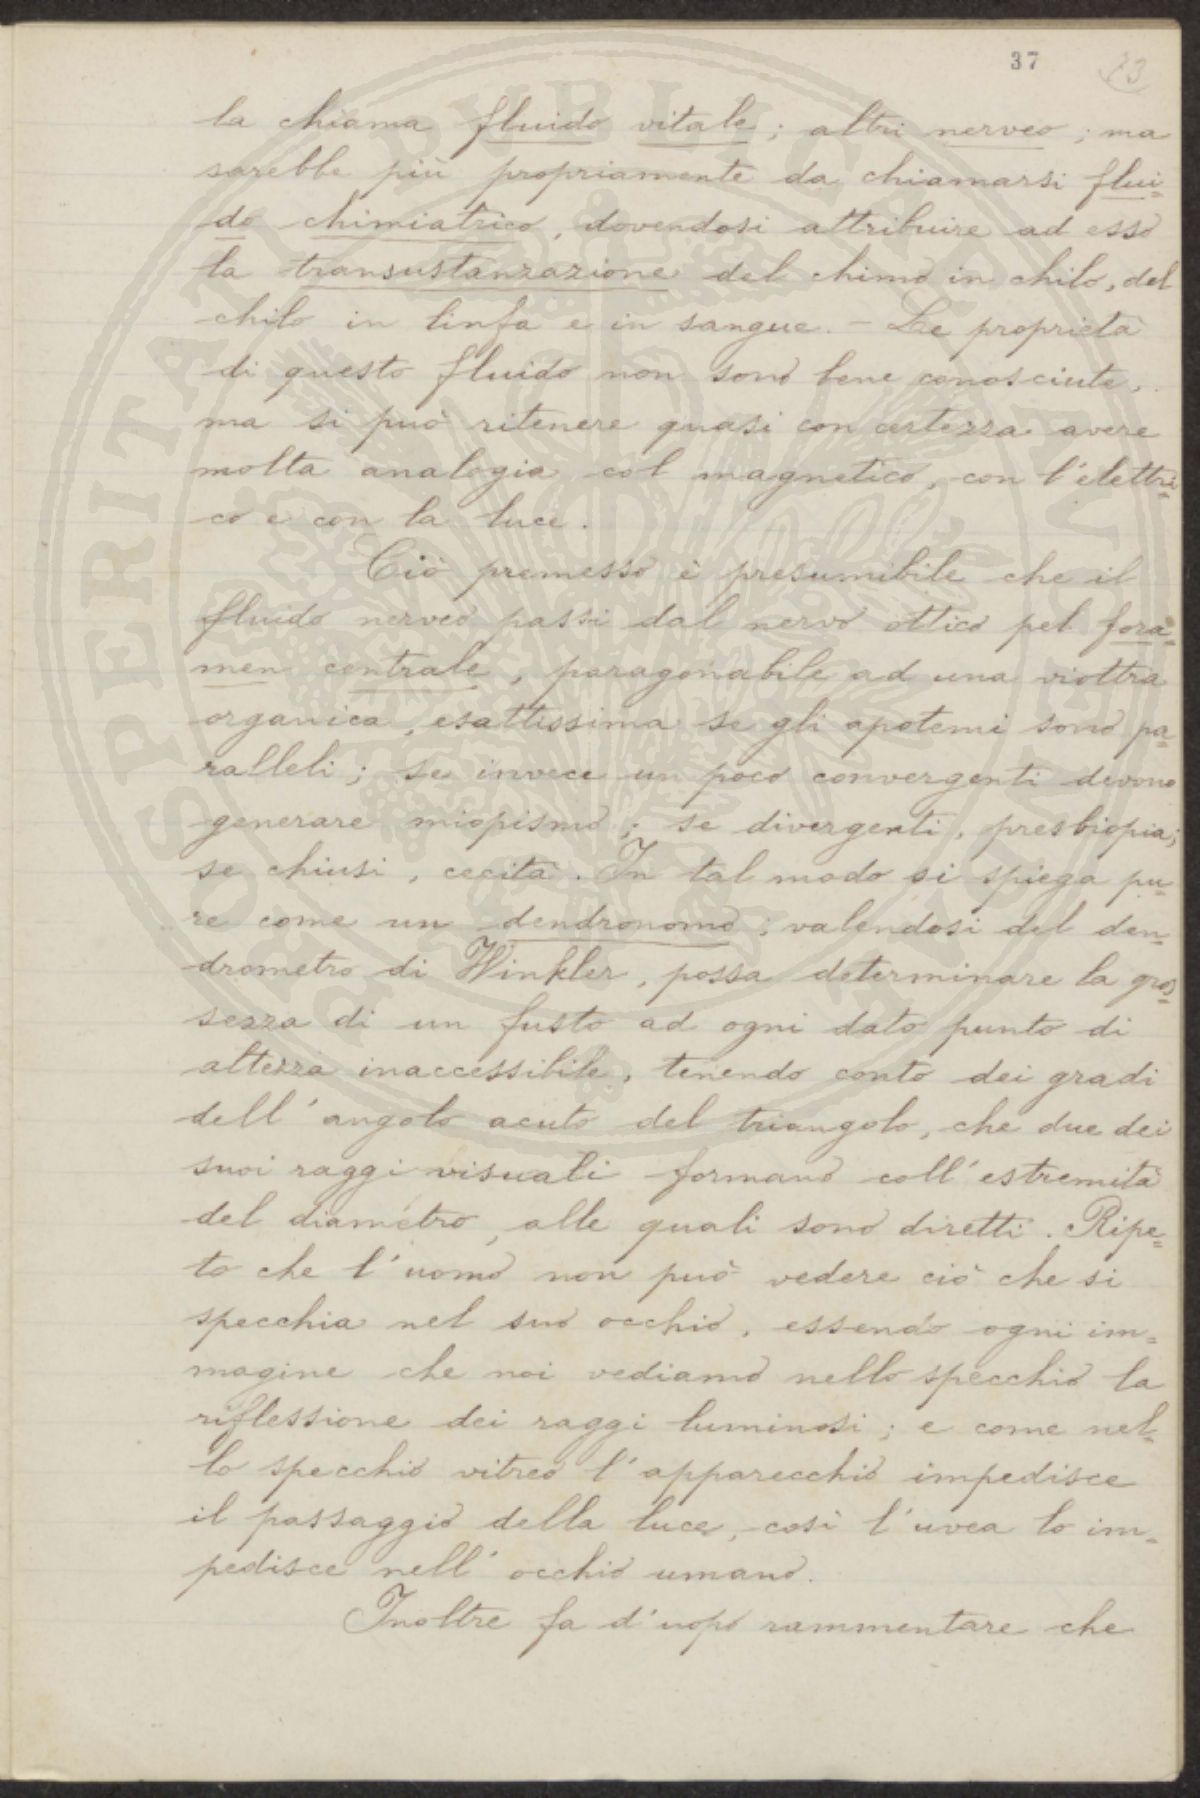 37 73
la chiama fluido vitale; altri nerveo; ma
sarebbe più propriamente da chiamarsi flui=
do chimiatrico, dovendosi attribuire ad esso
la transustanzazione del chimo in chilo, del
chilo in linfa e in sangue. – Le proprietà
di questo fluido non sono bene conosciute,
ma si può ritenere quasi con certezza avere
molta analogia col magnetico, con l'elettri=
co e con la luce.
Ciò premesso è presumibile che il
fluido nerveo passi dal nervo ottico pel fora=
men centrale, paragonabile ad una diottra
organica, esattissima se gli apotemi sono pa=
ralleli; se invece un poco convergenti devono
generare miopismo; se divergenti, presbiopia;
se chiusi, cecità. In tal modo si spiega pu=
re come un dendronomo, valendosi del den=
drometro di Winkler, possa determinare la gros=
sezza di un fusto ad ogni dato punto di
altezza inaccessibile, tenendo conto dei gradi
dell'angolo acuto del triangolo, che due dei
suoi raggi visuali formano coll'estremità
del diametro, alle quali sono diretti. Ripe=
to che l'uomo non può vedere ciò che si
specchia nel suo occhio, essendo ogni im=
magine che noi vediamo nello specchio la
riflessione dei raggi luminosi; e come nel=
lo specchio vitreo l'apparecchio impedisce
il passaggio della luce, così l'uvea lo im=
pedisce nell'occhio umano.
Inoltre fa d'uopo rammentare che